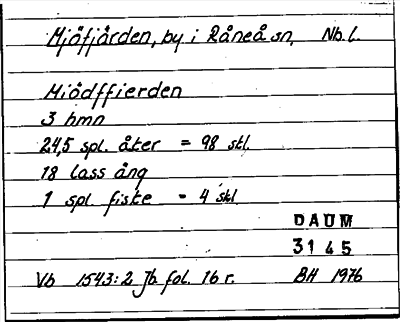 Mjöfjärden, by i Råneå sn, Nb. l.
Miödffierden
3 hmn
24,5 spl. åker = 98 skl.
18 lass äng
1 spl fiske = 4 skl
DAUM
3145
Vb 1543:2 Jb. fol. 16 r. BH 1976